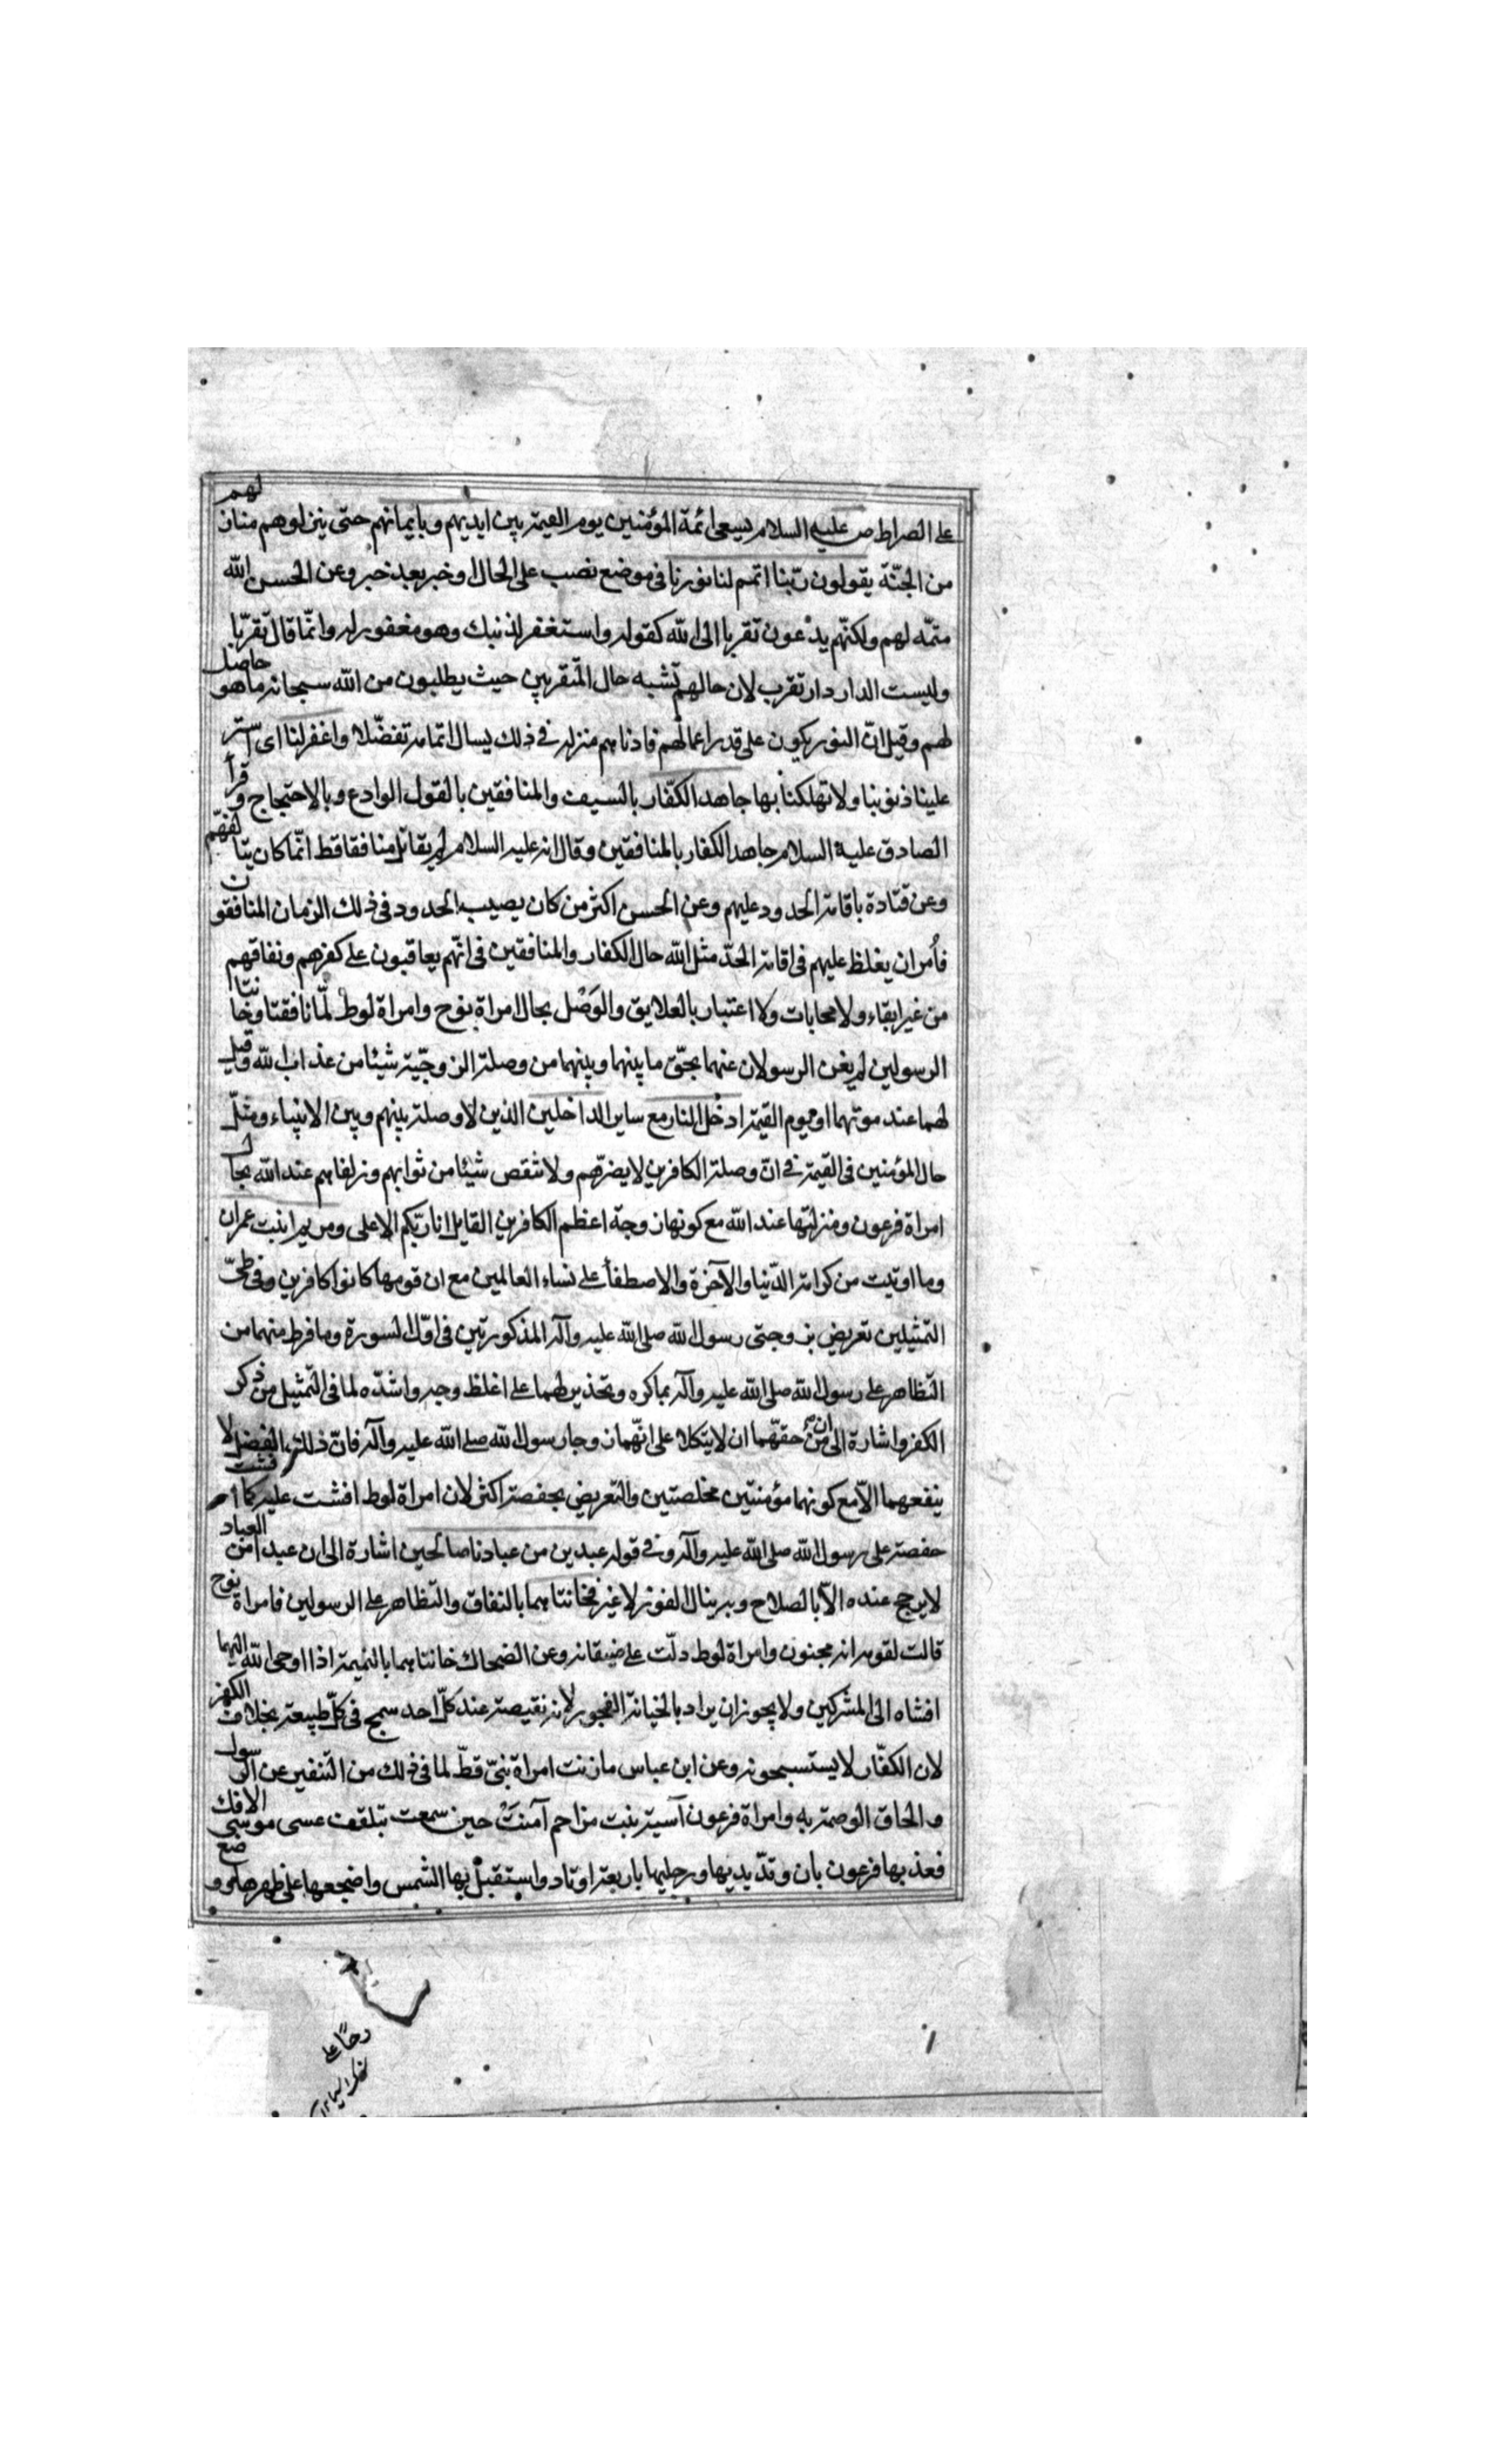 على الصراط ص عليه السلام يسعى ائمة المؤمنين يوم القيمة بين ايديهم وبايمانهم حتى ينزلوهم منازلهم
من الجنّة يقولون ربّنا اتمم لنا نورنا فى موضع نصب على الحال او خبر بعد خبر وعن الحسن الله
متمّه لهم ولكنّهم يدعون تقربا الى الله كقوله واستغفر لذنبك وهو مغفور له وانّما قال تقرّبا
وليست الدار دار تقرب لان حالهم تشبه حال المتقربين حيث يطلبون من الله سبحانه ما هو حاصل
لهم وقيل انّ النور يكون على قدر اعمالهم فادناهم منزلة فى ذلك يسال اتمامه تفضّلا واغفر لنا اى استر
علينا ذنوبنا ولا تهلكنا بها جاهد الكفّار بالسيف والمنافقين بالقول الوادع وبالاحتجاج وقرأ
الصادق عليه السلام جاهد الكفار بالمنافقين وقال انه عليه السلام لم يقاتل منافقا قط انّما كان يتالفهم
وعن قتادة باقامة الحدود عليهم وعن الحسن اكثر من كان يصيب الحدود فى ذلك الزمان المنافقون
فأمر ان يغلظ عليهم فى اقامة الحدّ مثل الله حال الكفار والمنافقين فى انّهم يعاقبون على كفرهم ونفاقهم
من غير ابقاء ولا محابات ولا اعتبار بالعلايق والوَصْل بحال امراة نوح وامراة لوط لمّا نافقتا وخانتا
الرسولين لم يغن الرسولان عنهما بحقّ ما بينهما وبينهما من وصلة الزوجيّة شيئا من عذاب الله وقيل
لهما عند موتهما او يوم القيمة ادخلا النار مع ساير الداخلين الذين لا وصلة بينهم وبين الانبياء ومثلّ
حال المؤمنين فى القيمة فى انّ وصلة الكافرين لا يضرّهم ولا تنقص شيئا من ثوابهم وزلفاهم عند الله بحال
امراة فرعون ومنزلتها عند الله مع كونها زوجة اعظم الكافرين القايل انا ربّكم الاعلى ومريم ابنت عمران
وما اوتيت من كرامة الدّنيا والآخرة والاصطفأ على نساء العالمين مع ان قومها كانوا كافرين وفى طىّ
التمثيلين تعريض بزوجتى رسول الله صلى الله عليه وآله المذكورتين فى اوّل السورة وما فرط منهما من
التظاهر على رسول الله صلى الله عليه وآله بما كره وتحذير لهما على اغلظ وجه واشدّه لما فى التمثيل من ذكر
الكفر واشارة الى ان من حقهّما ان لا يتكلا على انّهما زوجا رسول الله صلى الله عليه وآله فانّ ذلك الفضل لا
ينفعهما الاّ مع كونهما مؤمنتين مخلصتين والتعريض بحفصة اكثر لان امراة لوط افشت عليه كما افشت
حفصة على رسول الله صلى الله عليه وآله وفى قوله عبدين من عبادنا صالحين اشارة الى ان عبدا من العباد
لا يرجح عنده الاّ بالصلاح وبه ينال الفوز لا غير فخانتاهما بالنفاق والتظاهر على الرسولين فامراة نوح
قالت لقومه انه مجنون وامراة لوط دلّت على ضيفانه وعن الضحاك خانتاهما بالنميمة اذا اوحى الله اليهما
افشاه الى المشركين ولا يجوز ان يراد بالخيانة الفجور لانه نقيصة عند كلّ احد سمج فى كلّ طبيعة بخلاف الكفر
لان الكفّار لا يستسمجونه وعن ابن عباس ما زنت امراة نبىّ قطّ لما فى ذلك من التنفير عن الرسول
والحاق الوصمة به وامراة فرعون آسية بنت مزاحم آمنَتْ حين سمعت بتلقف عسى موسى الافك
فعذبها فرعون بان وتدّ يديها ورجليها باربعة اوتاد واستقبل بها الشمس واضجعها على ظهرها ووضع